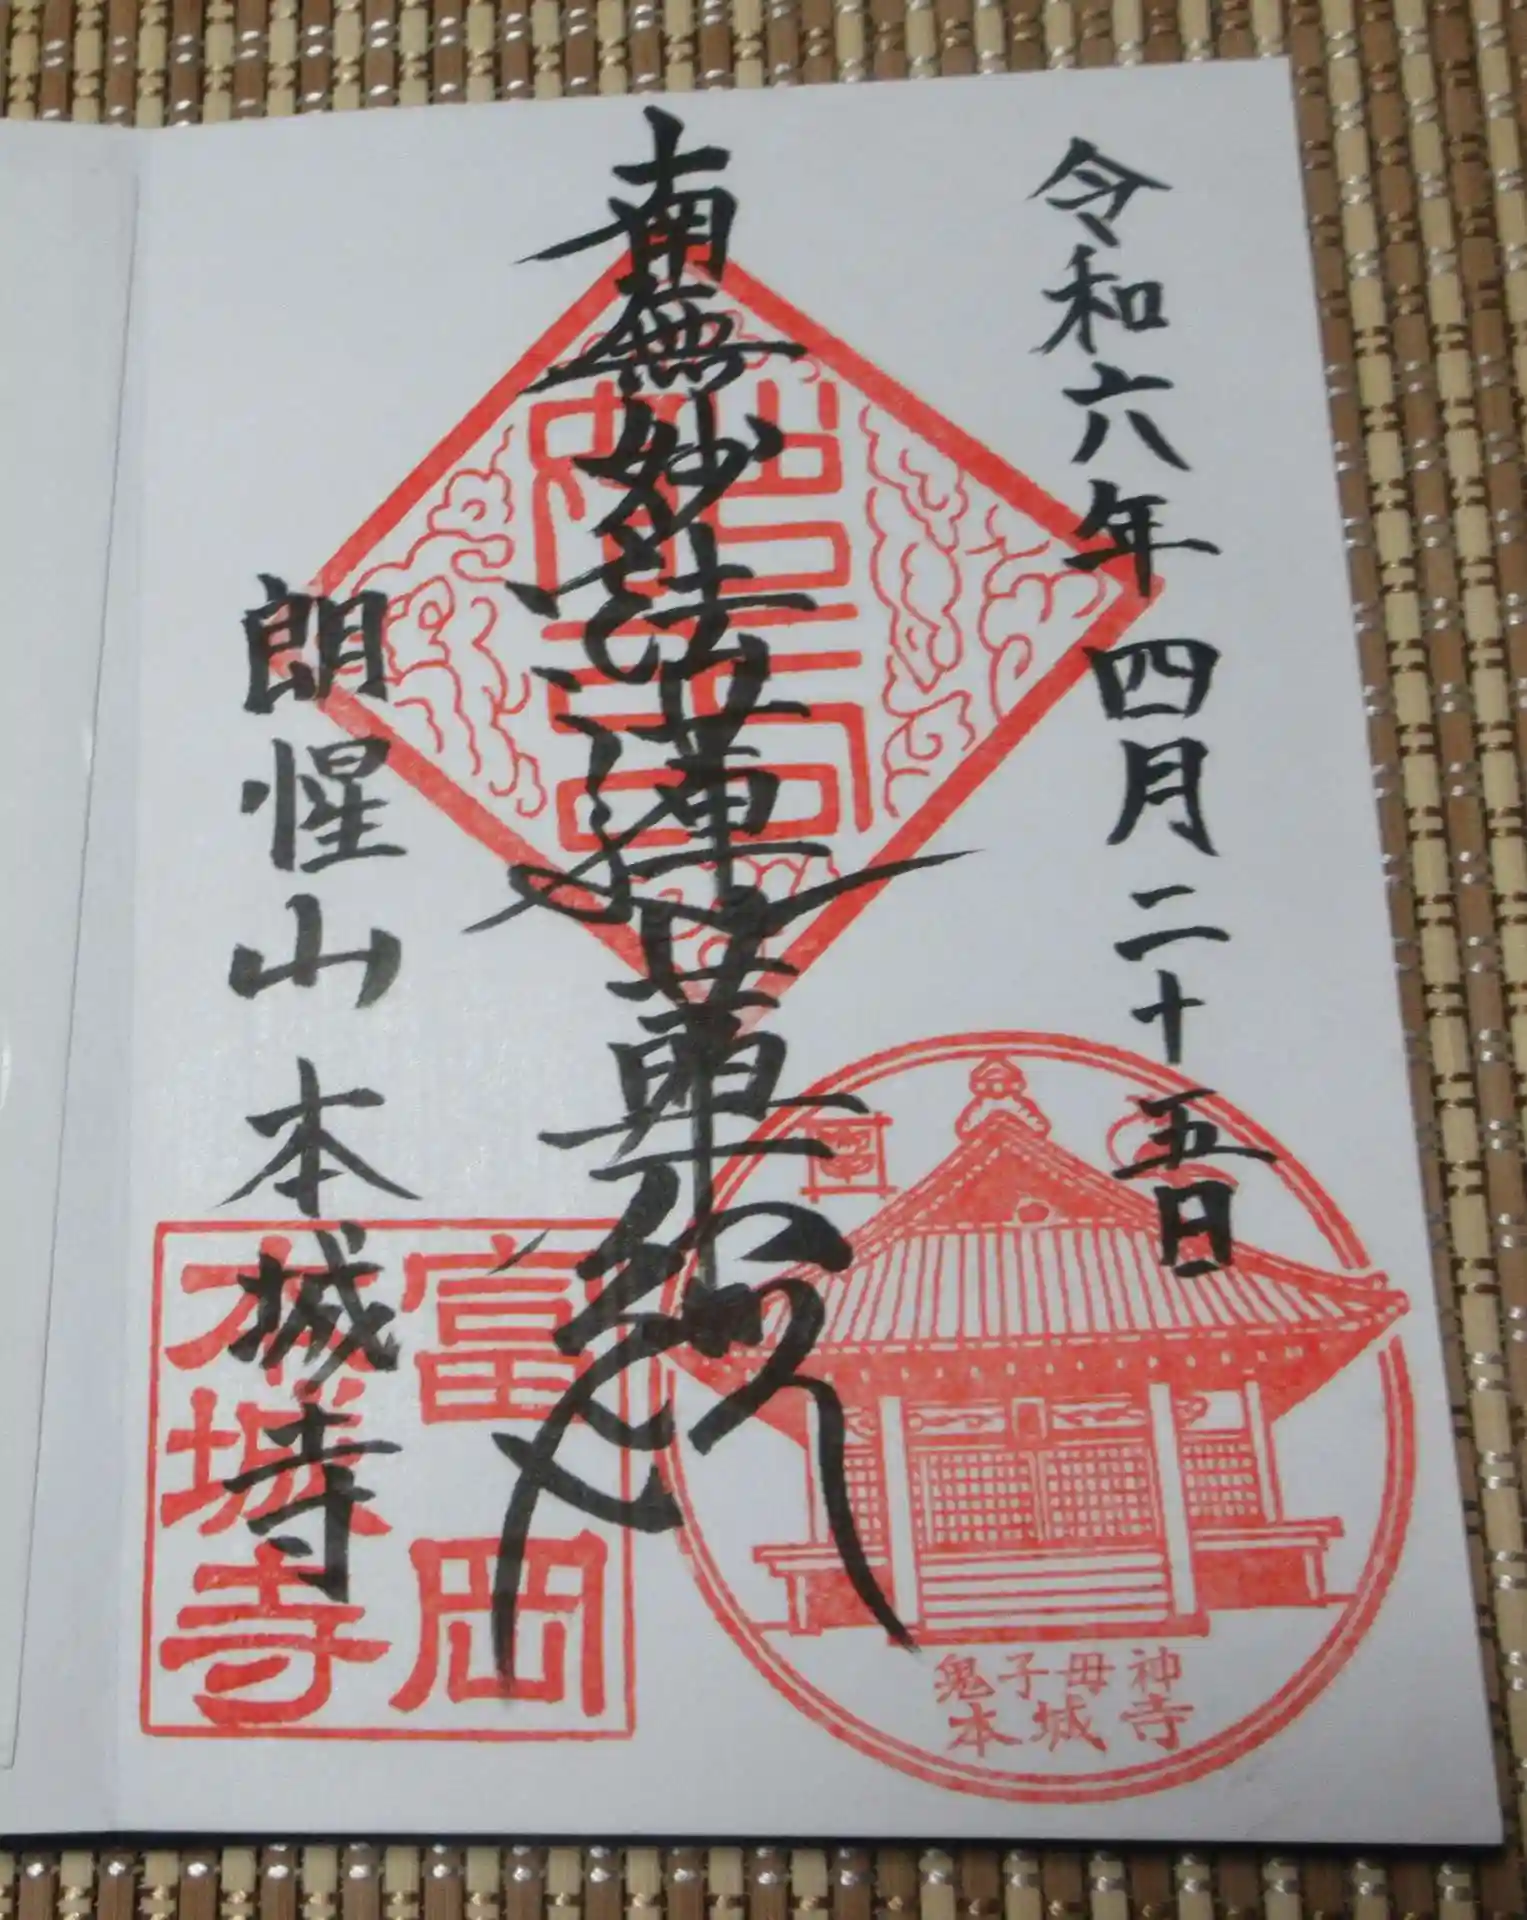 令和六年四月二十五日
南無妙法蓮華経
朗惺山本城寺
富岡
本城寺
鬼子母神
本城寺